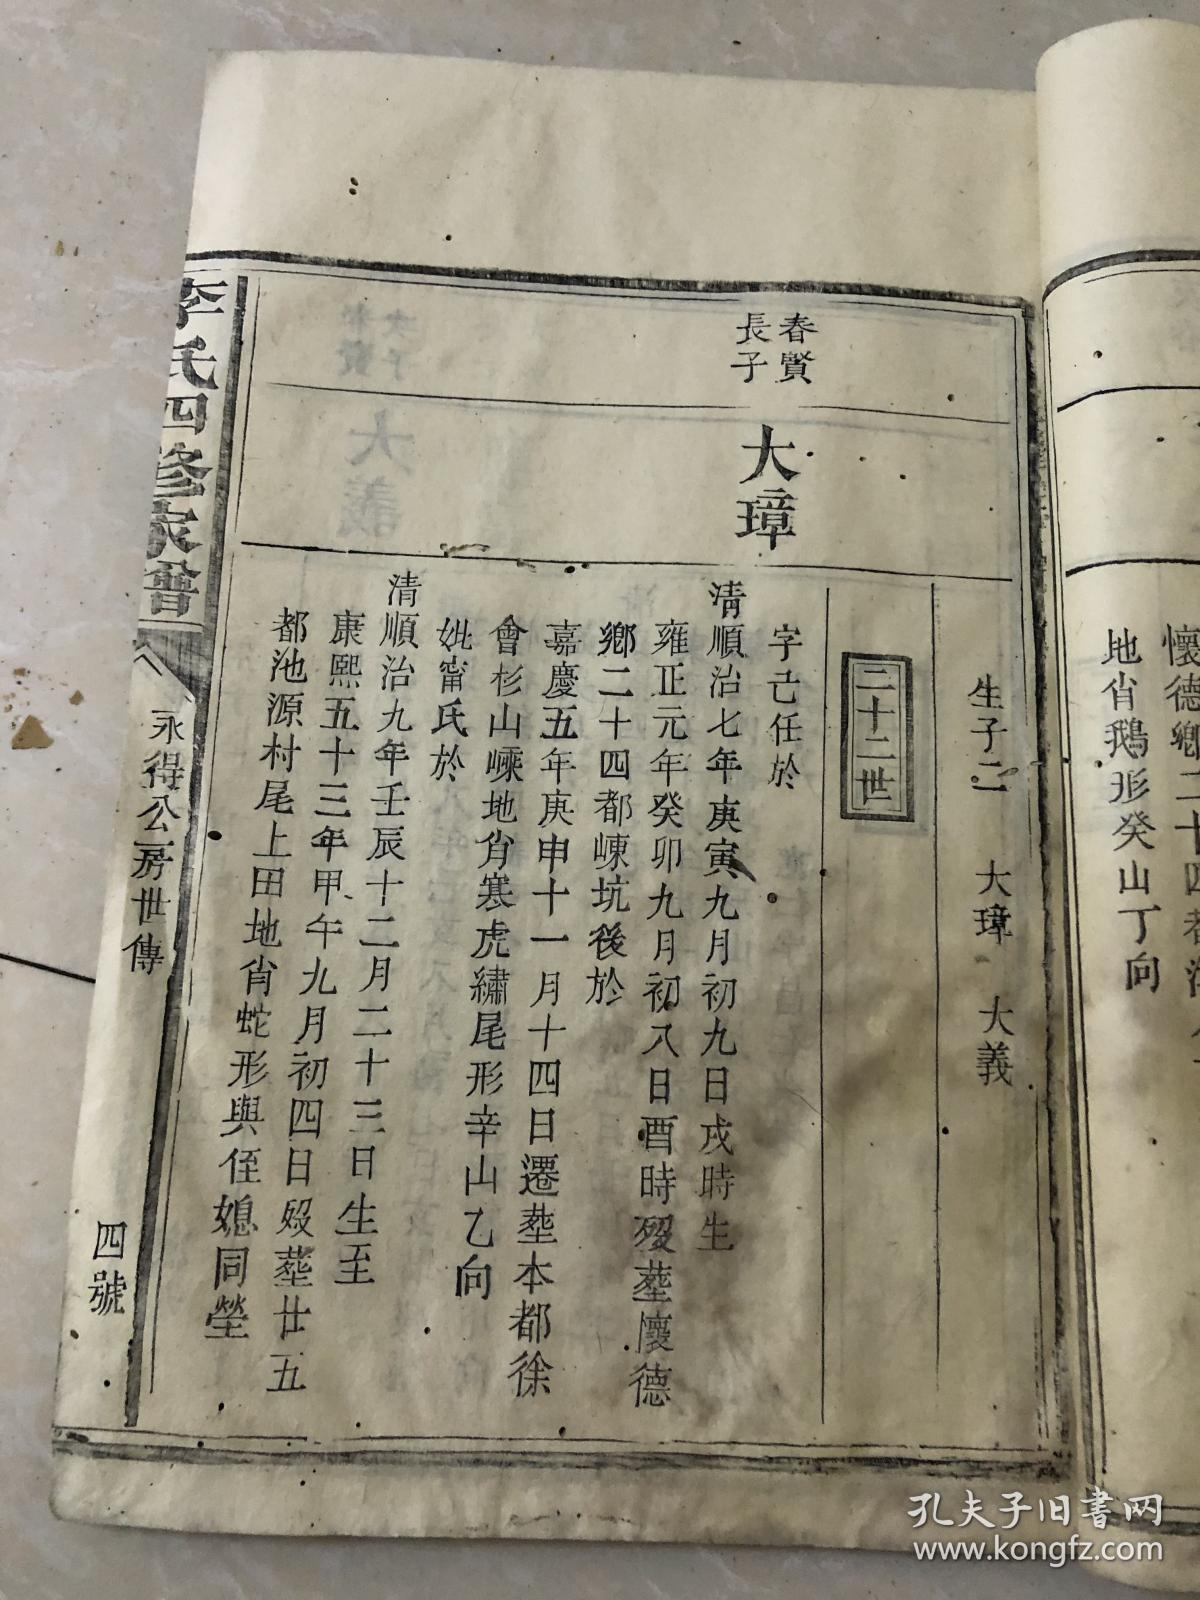 懷德鄉二十四都
地肖鵝形癸山丁向
生子二 大璋 大義
二十二世
春賢
長子
大璋
字已任於
清順治七年庚寅九月初九日戌時生
雍正元年癸卯九月初八日酉時殁塟懷德
鄉二十四都崠坑後於
嘉慶五年庚申十一月十四日遷塟本都徐
會杉山嵊地肖寒虎繡尾形辛山乙向
妣甯氏於
清順治九年壬辰十二月二十三日生至
康熙五十三年甲午九月初四日殁塟廿五
都池源村尾上田地肖蛇形與侄媳同塋
李氏四修家譜
永得公房世傳
四號
孔夫子旧書网
www.kongfz.com